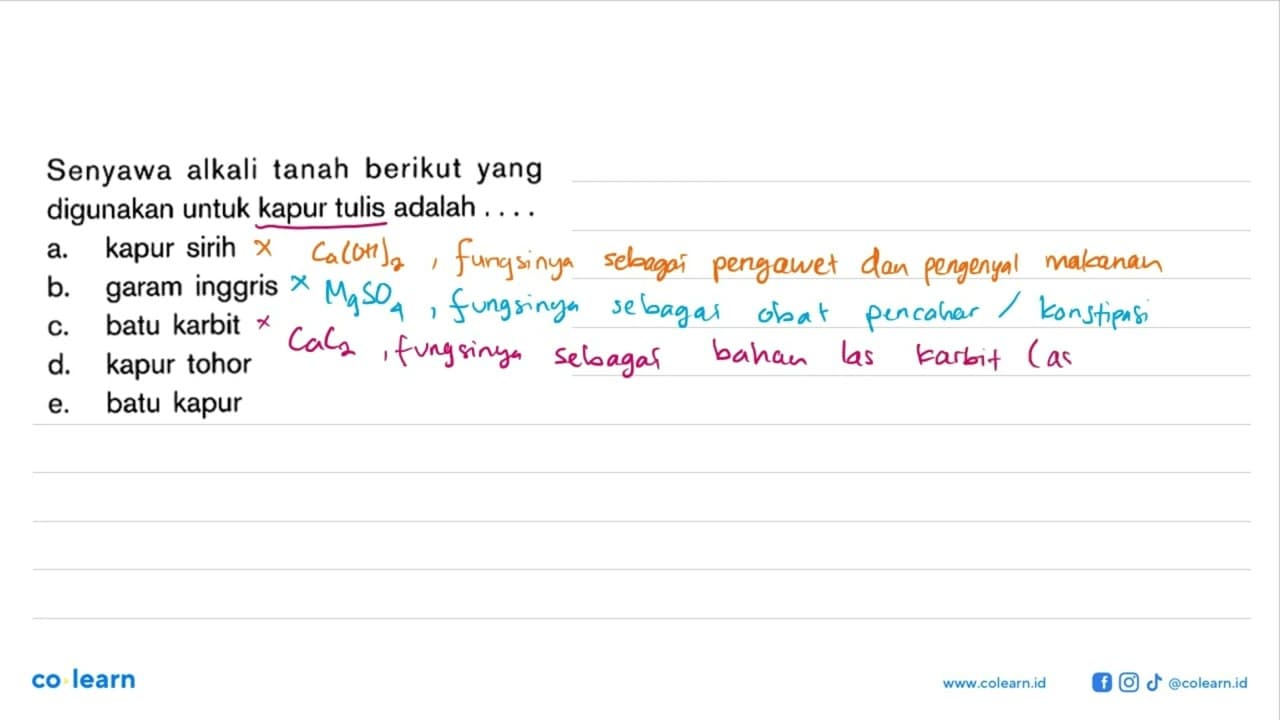 Senyawa alkali tanah berikut yang
digunakan untuk kapur tulis adalah . . . .
a. kapur sirih × Ca(OH)₂ , fungsinya sebagai pengawet dan pengenyal makanan
b. garam inggris × MgSO₄ , fungsinya sebagai obat pencahar / konstipasi
c. batu karbit × CaC₂ , fungsinya sebagai bahan las karbit (as
d. kapur tohor
e. batu kapur
co learn
www.colearn.id @colearn.id